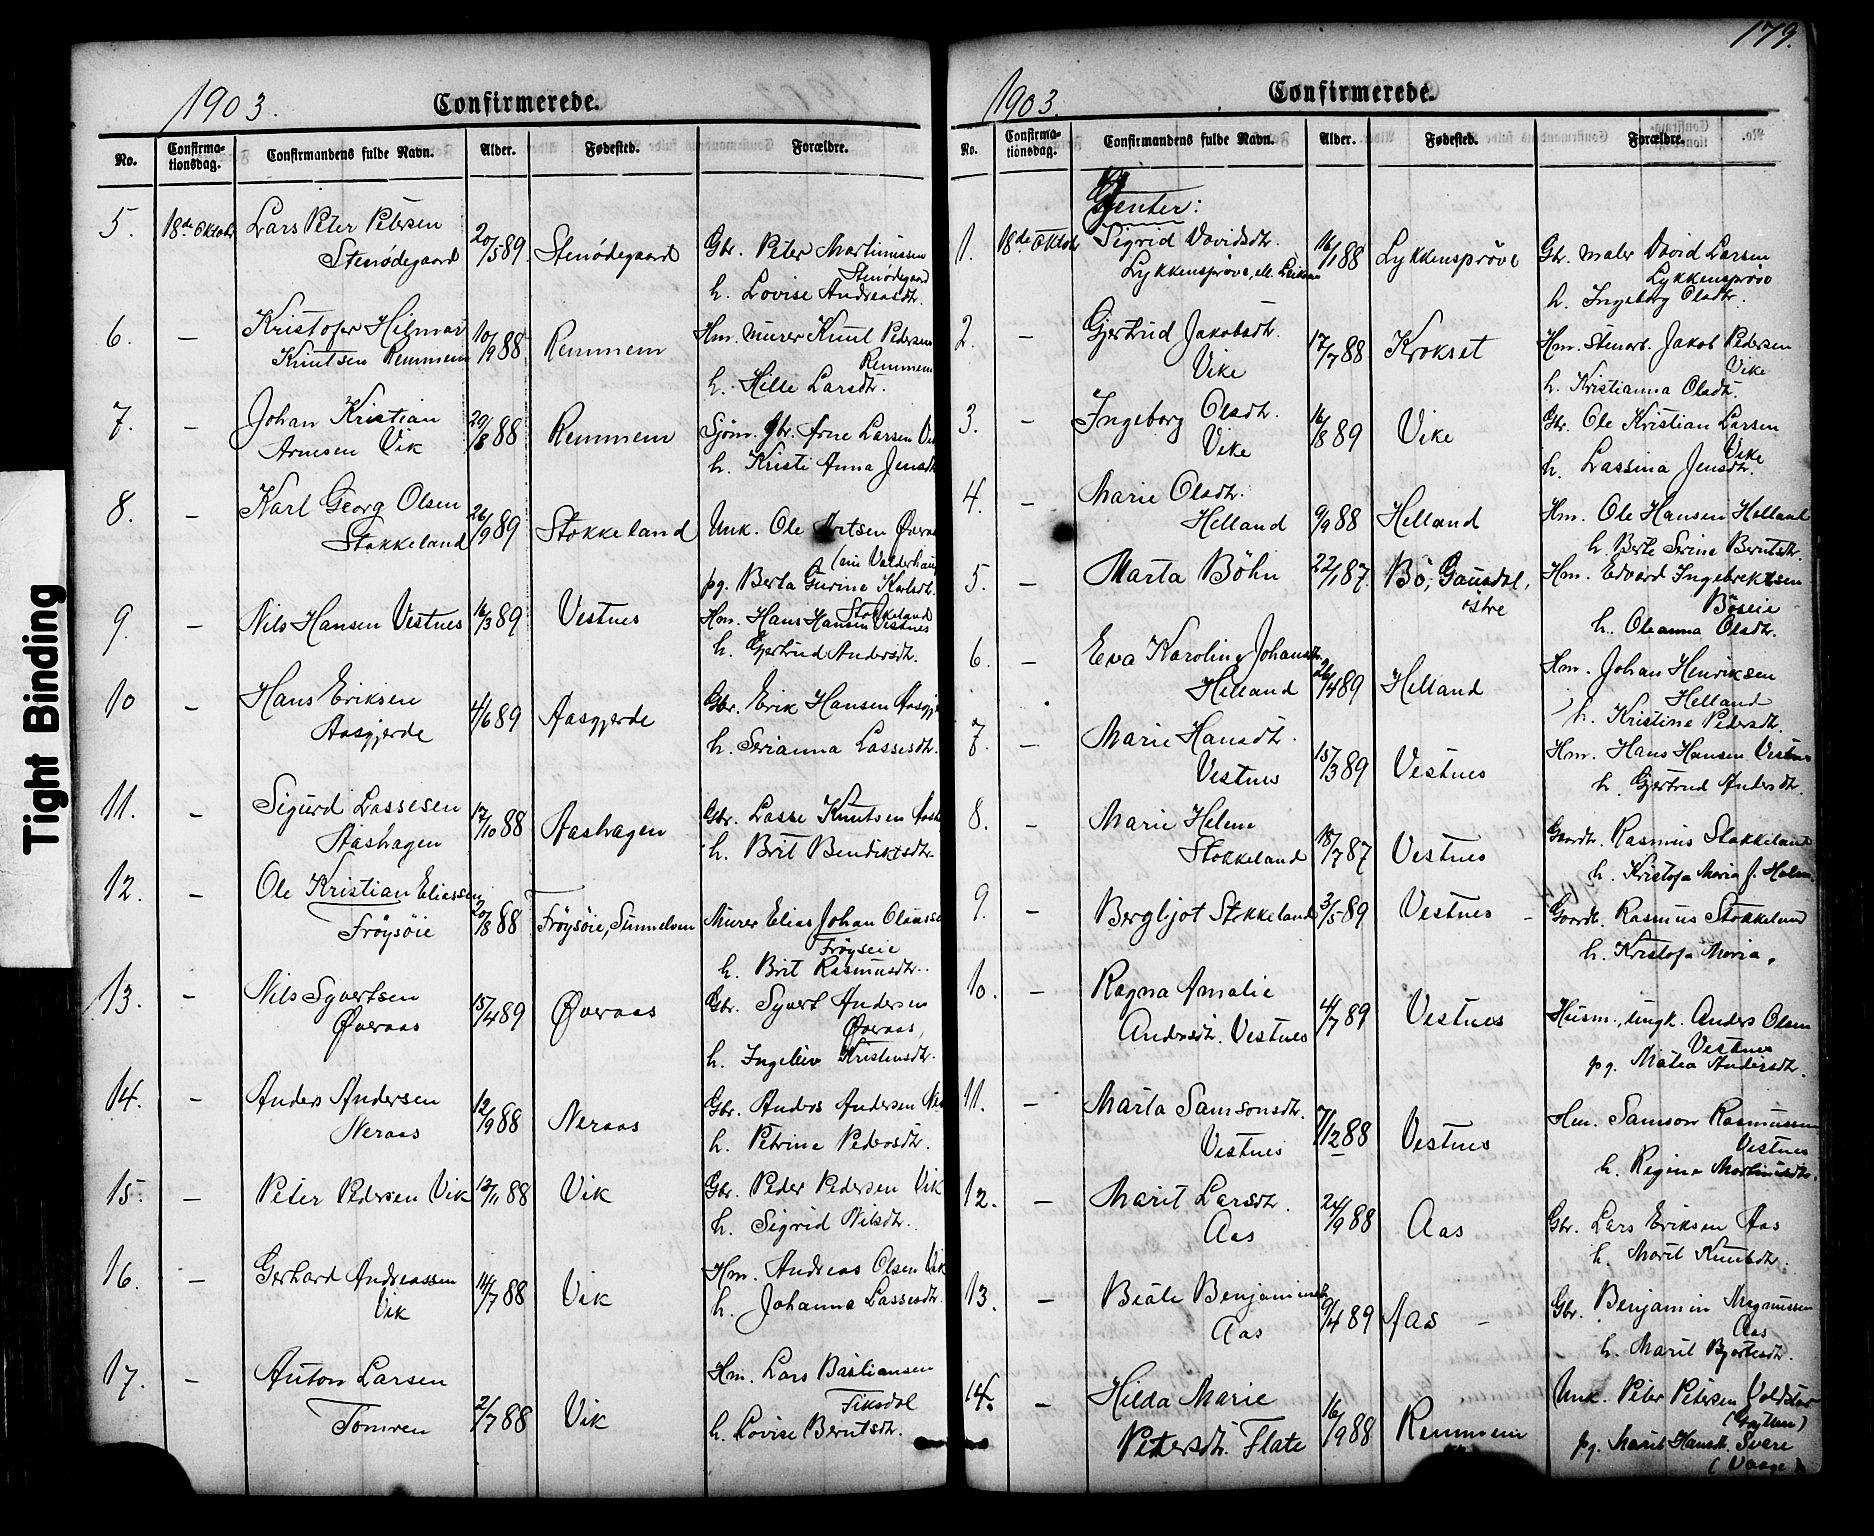 179.
1903.
Confirmerede.
No.
Confirma-
tionsdag.
Confirmandens fulde Navn.
Alder.
Fødested.
Forældre.
5.
18de Oktobr
Lars Peter Petersen
Stenødegaard
20/5 89
Stenødegaard
Gbr. Peter Martinussen
Stenødegaard
h. Lovise Andreasdtr.
6.
–
Kristofer Hilmar
Knutsen Remmem
10/9 88
Remmem
Hm. murer Knut Pedersen
Remmem
h. Hille Larsdtr.
7.
–
Johan Kristian
Arnesen Vik
29/8 88
Remmem
Sjøm. Gbr. Arne Larsen Vik
h. Kristi Anna Jensdtr
8.
–
Karl Georg Olsen
Stokkeland
26/9 89
Stokkeland
Unk. Ole Øveraas
pg. Berta Gurine Karlsdtr.
Stokkeland
9.
–
Nils Hansen Vestnes
16/3 89
Vestnes
Hm. Hans Hansen Vestnes
h. Gjertrud Andersdtr.
10
–
Hans Eriksen
Aasgjerde
4/6 89
Aasgjerde
Gbr. Erik Hansen Aasgj
h. Serianna Lassesdtr.
11.
–
Sigurd Lassesen
Aashagen
17/10 88
Aashagen
Gbr. Lasse Knutsen Aash
h. Brit Bendiktsdtr.
12.
–
Ole Kristian Eliassen
Frøysøie
20/8 88
Frøysøie, Sunnelven
Murer Elias Johan Olaussen
Frøyseie
h. Brit Rasmusdtr.
13.
–
Nils Syvertsen
Øveraas
15/4 89
Øveraas
Gbr. Syvert Andersen
Øveraas,
h. Ingeleiv Kristensdtr.
14.
–
Anders Andersen
Neraas
12/9 88
Neraas
Gbr. Anders Andersen Ne
h. Petrine Pedersdtr.
15.
–
Peter Pedersen Vik
13/11 88
Vik
Gbr. Peder Pedersen Vik
h. Sigrid Nilsdtr.
16.
–
Gerhard Andreassen
Vik
14/7 88
Vik
Hm. Andreas Olsen Vik
h. Johanna Lassesdtr.
17.
–
Anton Larsen
Tomren
2/7 88
Vik
Hm. Lars Bastiansen
Fiksdal
h. Lovise Berntsdtr.
1903.
Confirmerede.
No.
Confirma-
tionsdag.
Confirmandens fulde Navn.
Alder.
Fødested.
Forældre.
Jenter:
1.
18de Oktobr
Sigrid Davidsdtr.
Lykkensprøve,
16/1 88
Lykkensprøve
Gbr. maler David Larsen
Lykkensprøve
h. Ingeborg Olsdtr.
2.
–
Gjertrud Jakobsdtr.
Vike
17/7 88
Krokset
Hm. Stenarb. Jakob Pedersen
Vike
h. Kristianna Olsdtr.
3.
–
Ingeborg Olsdtr.
Vike
16/8 89
Vike
Gbr. Ole Kristian Larsen
Vike
h. Lassina Jensdtr.
4.
–
Marie Olsdtr.
Helland
9/9 88
Helland
Hm. Ole Hansen Helland
h. Berte Serine Berntsdtr.
5.
–
Marta Böhn
22/1 87.
Bö, Gausdal,
østre
Hm. Edvard Ingebrektsen
Böseie
h. Oleanna Olsdtr.
6.
–
Eva Karoline Johansdtr.
Helland
26/4 89
Helland
Hm. Johan Henriksen
Helland
h. Kristine Pedersdtr.
7.
–
Marie Hansdtr.
Vestnes
15/3 89
Vestnes
Hm. Hans Hansen Vestnes
h. Gjertrud Andersdtr.
8.
–
Marie Helene
Stokkeland
18/7 87
Vestnes
Gaardbr. Rasmus Stokkeland
h. Kristofa Maria f. Holm.
9.
–
Bergljot Stokkeland
3/5 89
Vestnes
Gaardbr. Rasmus Stokkeland
h. Kristofa Maria.
10.
–
Ragna Amalie
Andersdtr. Vestnes
4/7 89
Vestnes
Husm., ungk. Anders Olsen
Vestnes
pg. Matea Andersdtr.
11.
–
Marta Samsonsdtr.
Vestnes
7/12 88
Vestnes
Hm. Samson Rasmussen
Vestnes
h. Regine Martinusdtr.
12.
–
Marit Larsdtr.
Aas
24/9 88
Aas
Gbr. Lars Eriksen Aas
h. Marit Knutsdtr.
13.
–
Beate Benjaminsdtr
Aas
9/4 89
Aas
Gbr. Benjamin Magnussen
Aas
h. Marit Bjørtesdtr.
14.
–
Hilda Marie
Petersdtr. Flate
16/9 88
Remmem
Unk. Peter Petersen
pg. Marit Hansdtr. Svere
(Vaage)
Tight Binding